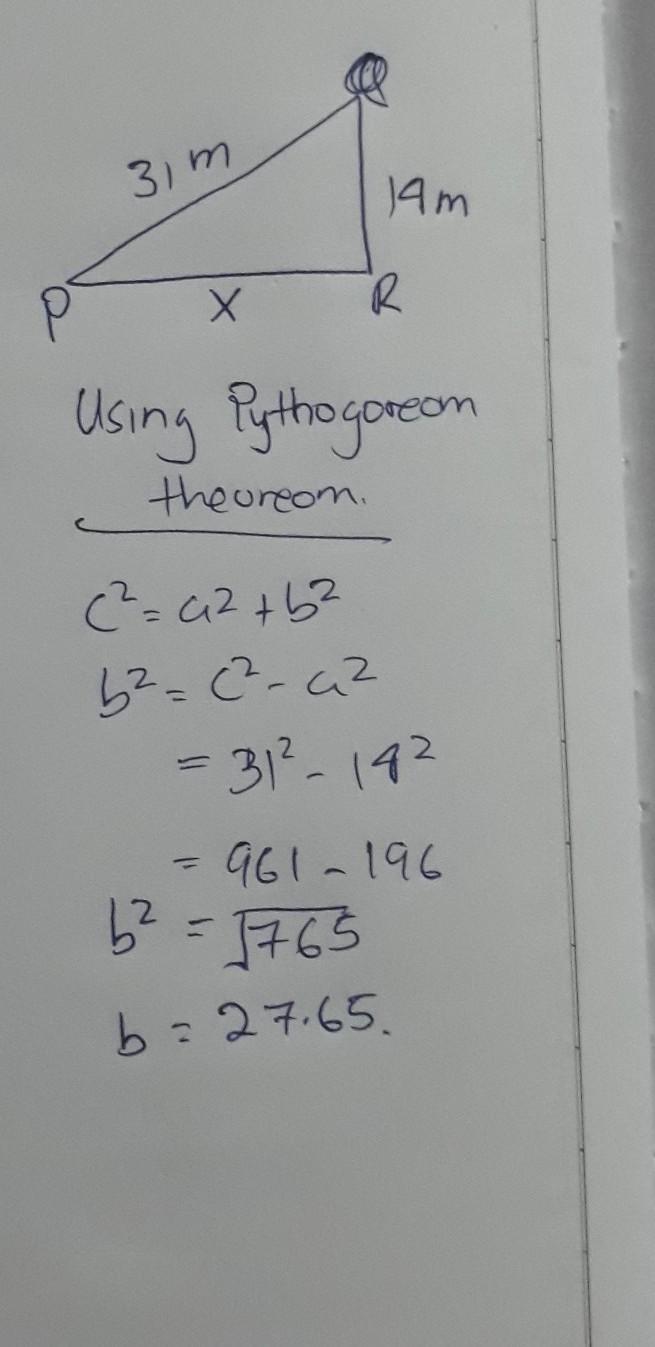 Q
31 m
14m
P
x
R
Using Pythogoream
theoreom.
c² = a² + b²
b² = c² - a²
= 31² - 14²
= 961 - 196
b² = √765
b = 27.65.